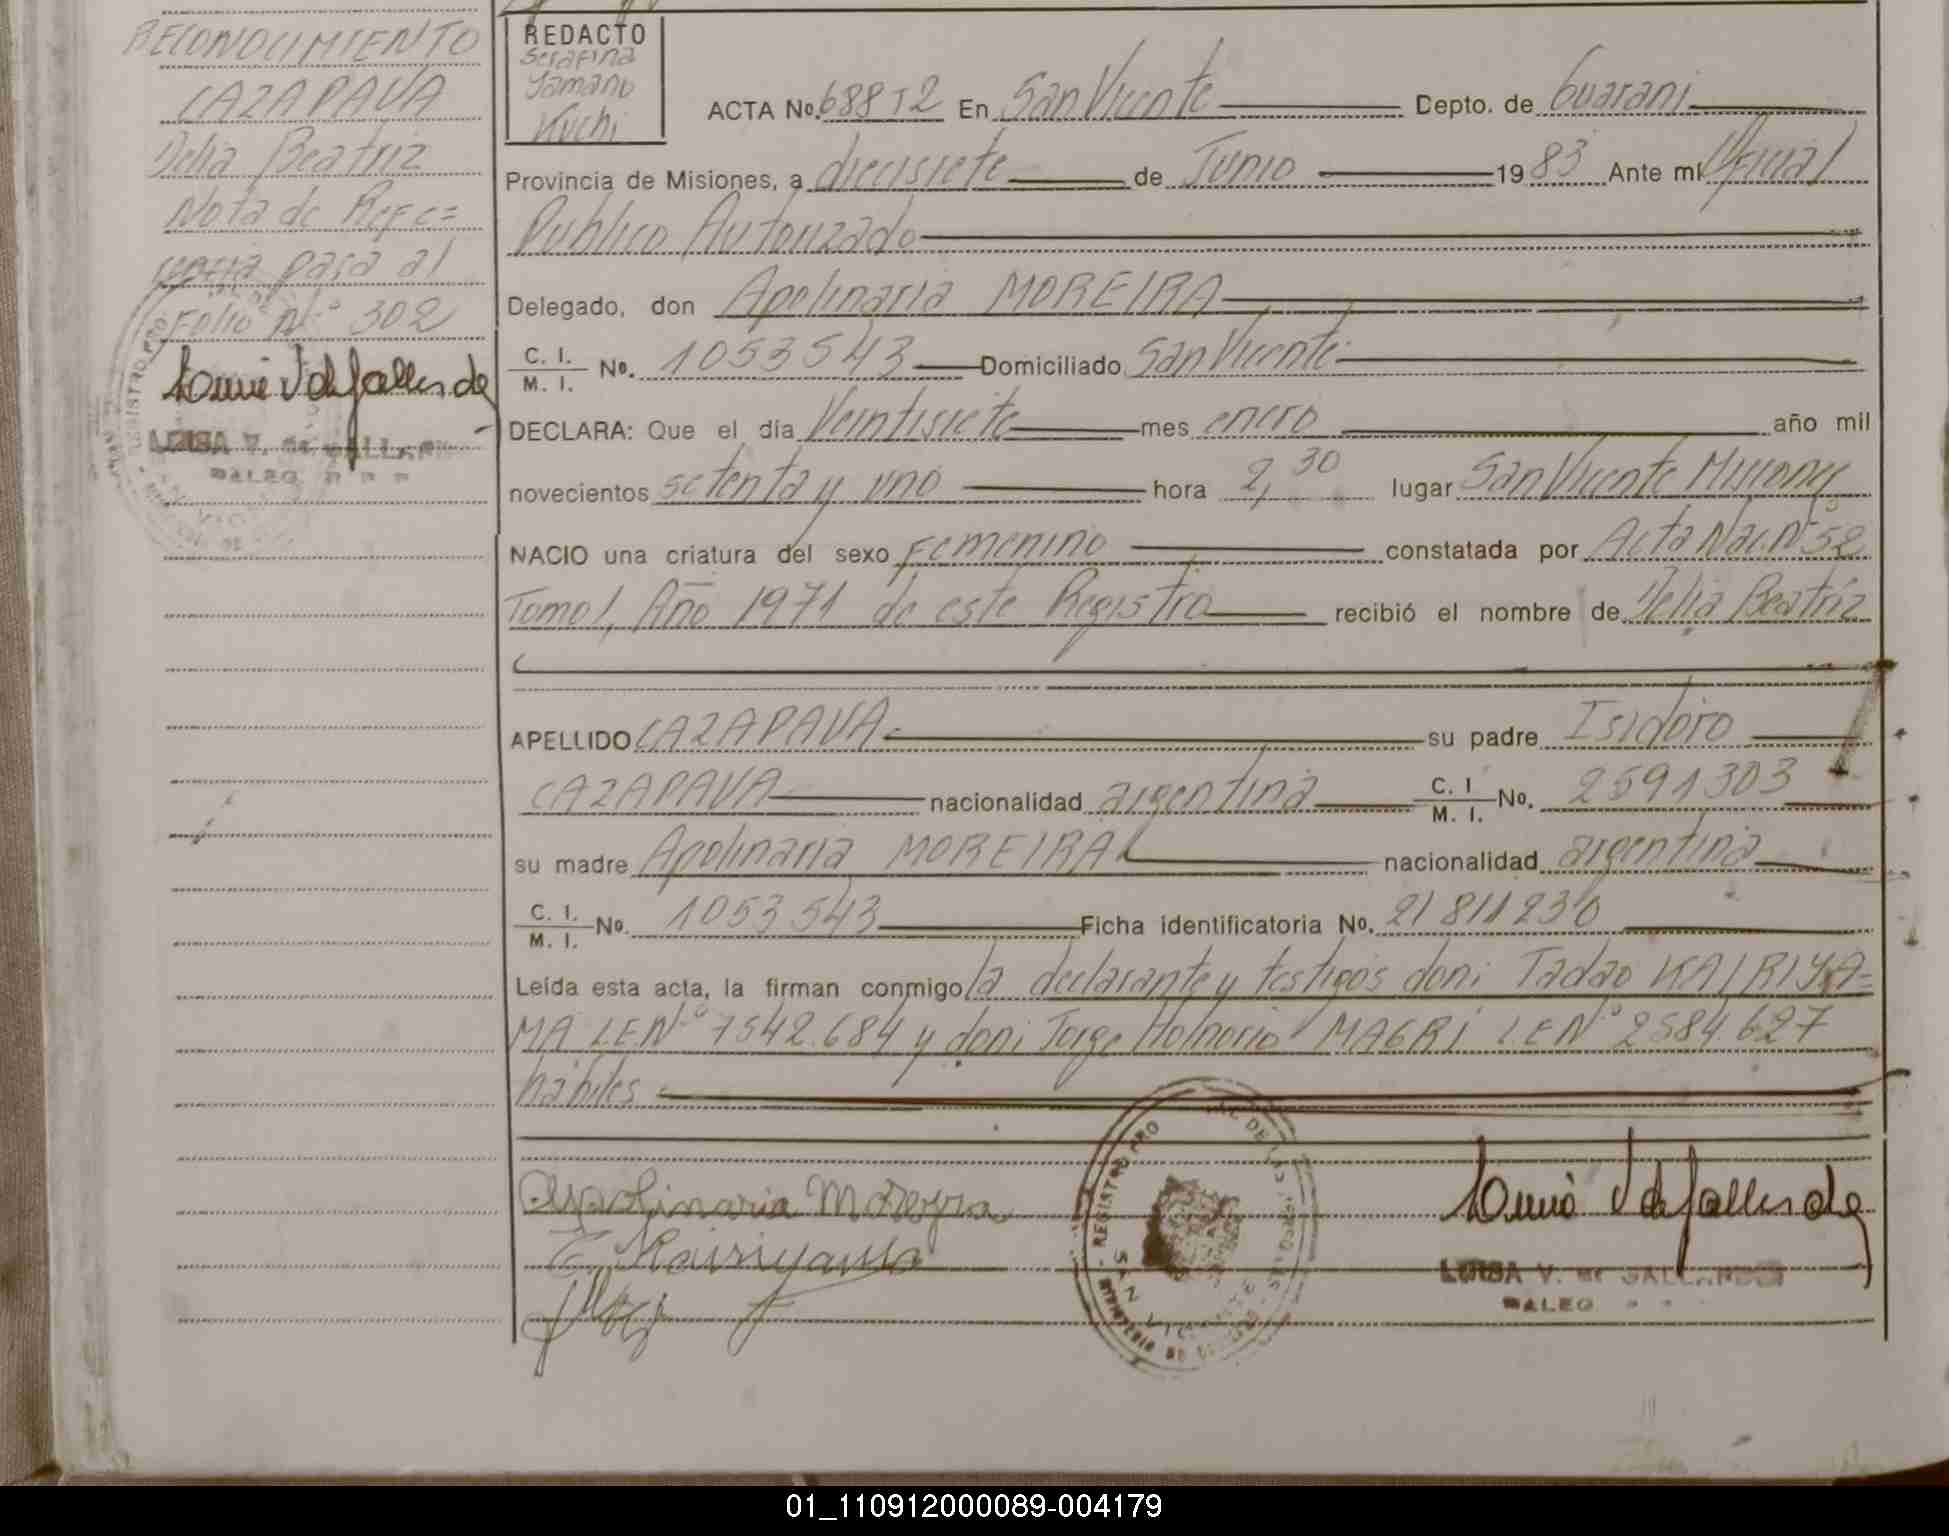 RECONOCIMIENTO
CAZAPAVA
Delia Beatriz
Nota de Refe=
rencia para al
Folio Nº 302
LUISA V. de GALLARDO
REDACTO
Serafina
Yamano
Kuchi
ACTA No. 688 T2 En San Vicente Depto. de Guarani
Provincia de Misiones, a diecisiete de Junio 1983 Ante mí Oficial
Publico Autorizado
Delegado, don Apolinaria MOREIRA
C. I. M. I. No. 1053543 Domiciliado San Vicente
DECLARA: Que el día Veintisiete mes enero año mil
novecientos setenta y uno hora 2,30 lugar San Vicente Misiones
NACIO una criatura del sexo Femenino constatada por Acta Nac. Nº 52
Tomo 1, Año 1971 de este Registro recibió el nombre de Delia Beatríz
APELLIDO CAZAPAVA su padre Isidoro
CAZAPAVA nacionalidad argentina C. I M. I. No. 2591303
su madre Apolinaria MOREIRA nacionalidad argentina
C. I. M. I. No. 1053543 Ficha identificatoria No. 21811230
Leída esta acta, la firman conmigo la declarante y testigos don: Tadao KAIRIYA=
MA L.E Nº 7542.684 y don: Jorge Honorio MAGRI L.E Nº 2584.627
hábiles
Apolinaria Moreyra
T. Kairiyama
REGISTRO PRO DE LAS PERSONAS
SAN VICENTE
LUISA V. de GALLARDO
01_110912000089-004179